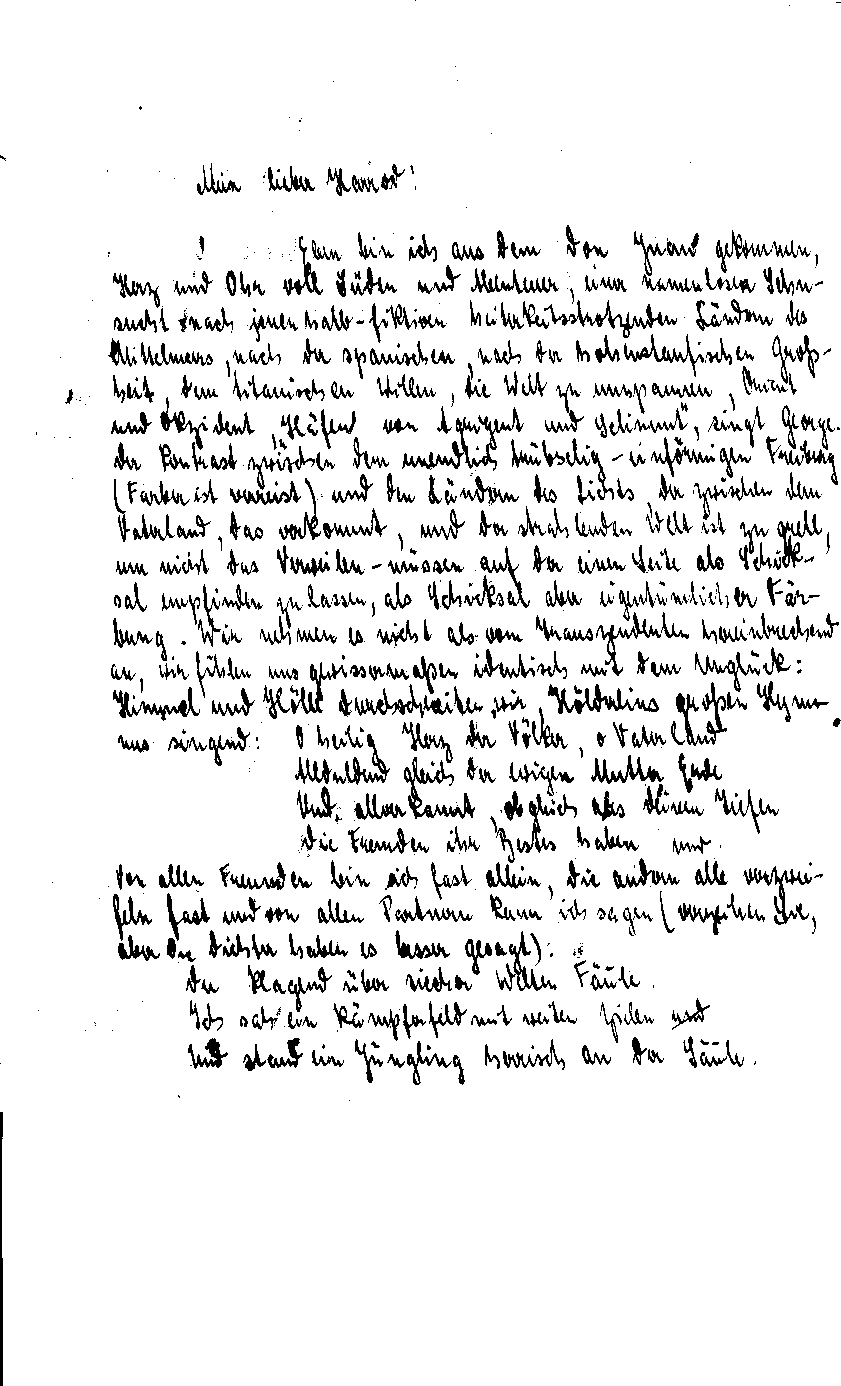 Mein lieber Harrod!
Eben bin ich aus dem Don Juan gekommen,
Herz und Ohr voll Süden und Abenteuer, einer namenlosen Sehn-
sucht nach jenen halb-fiktiven heiterkeitsstrotzenden Ländern des
Mittelmeers, nach der spanischen, nach der hohenstaufischen Groß-
heit, dem titanischen Willen, die Welt zu umspannen, Orient
und Okzident „Häfen von Agrigent und Selinunt“, singt George.
Der Kontrast zwischen dem unendlich trübselig-einförmigen Freiburg
(Farber ist verreist) und den Ländern des Lichts, der zwischen dem
Vaterland, das verkommt, und der strahlenden Welt ist zu grell,
um nicht das Verweilen-müssen auf der einen Seite als Schick-
sal empfinden zu lassen, als Schicksal aber eigentümlicher Fär-
bung. Wir nehmen es nicht als vom Transzendenten hereinbrechend
an, wir fühlen uns gewissermaßen identisch mit dem Unglück:
Himmel und Hölle durchschreiten wir, Hölderlins großen Hym-
nus singend: O heilig Herz der Völker, o Vaterland
Allduldend gleich der ewigen Mutter Erde
Und allverkannt, obgleich aus deinen Tiefen
die Fremden ihr Bestes haben und.
Von allen Freunden bin ich fast allein, die andern alle verzwei-
feln fast und von allen Partnern kann ich sagen (verzeihen Sie,
aber die Dichter haben es besser gesagt):
Der klagend über siecher Welten Fäule.
Ich sah ein Kämpferfeld mit weiten Zielen
Und stand ein Jüngling herrisch an der Säule.